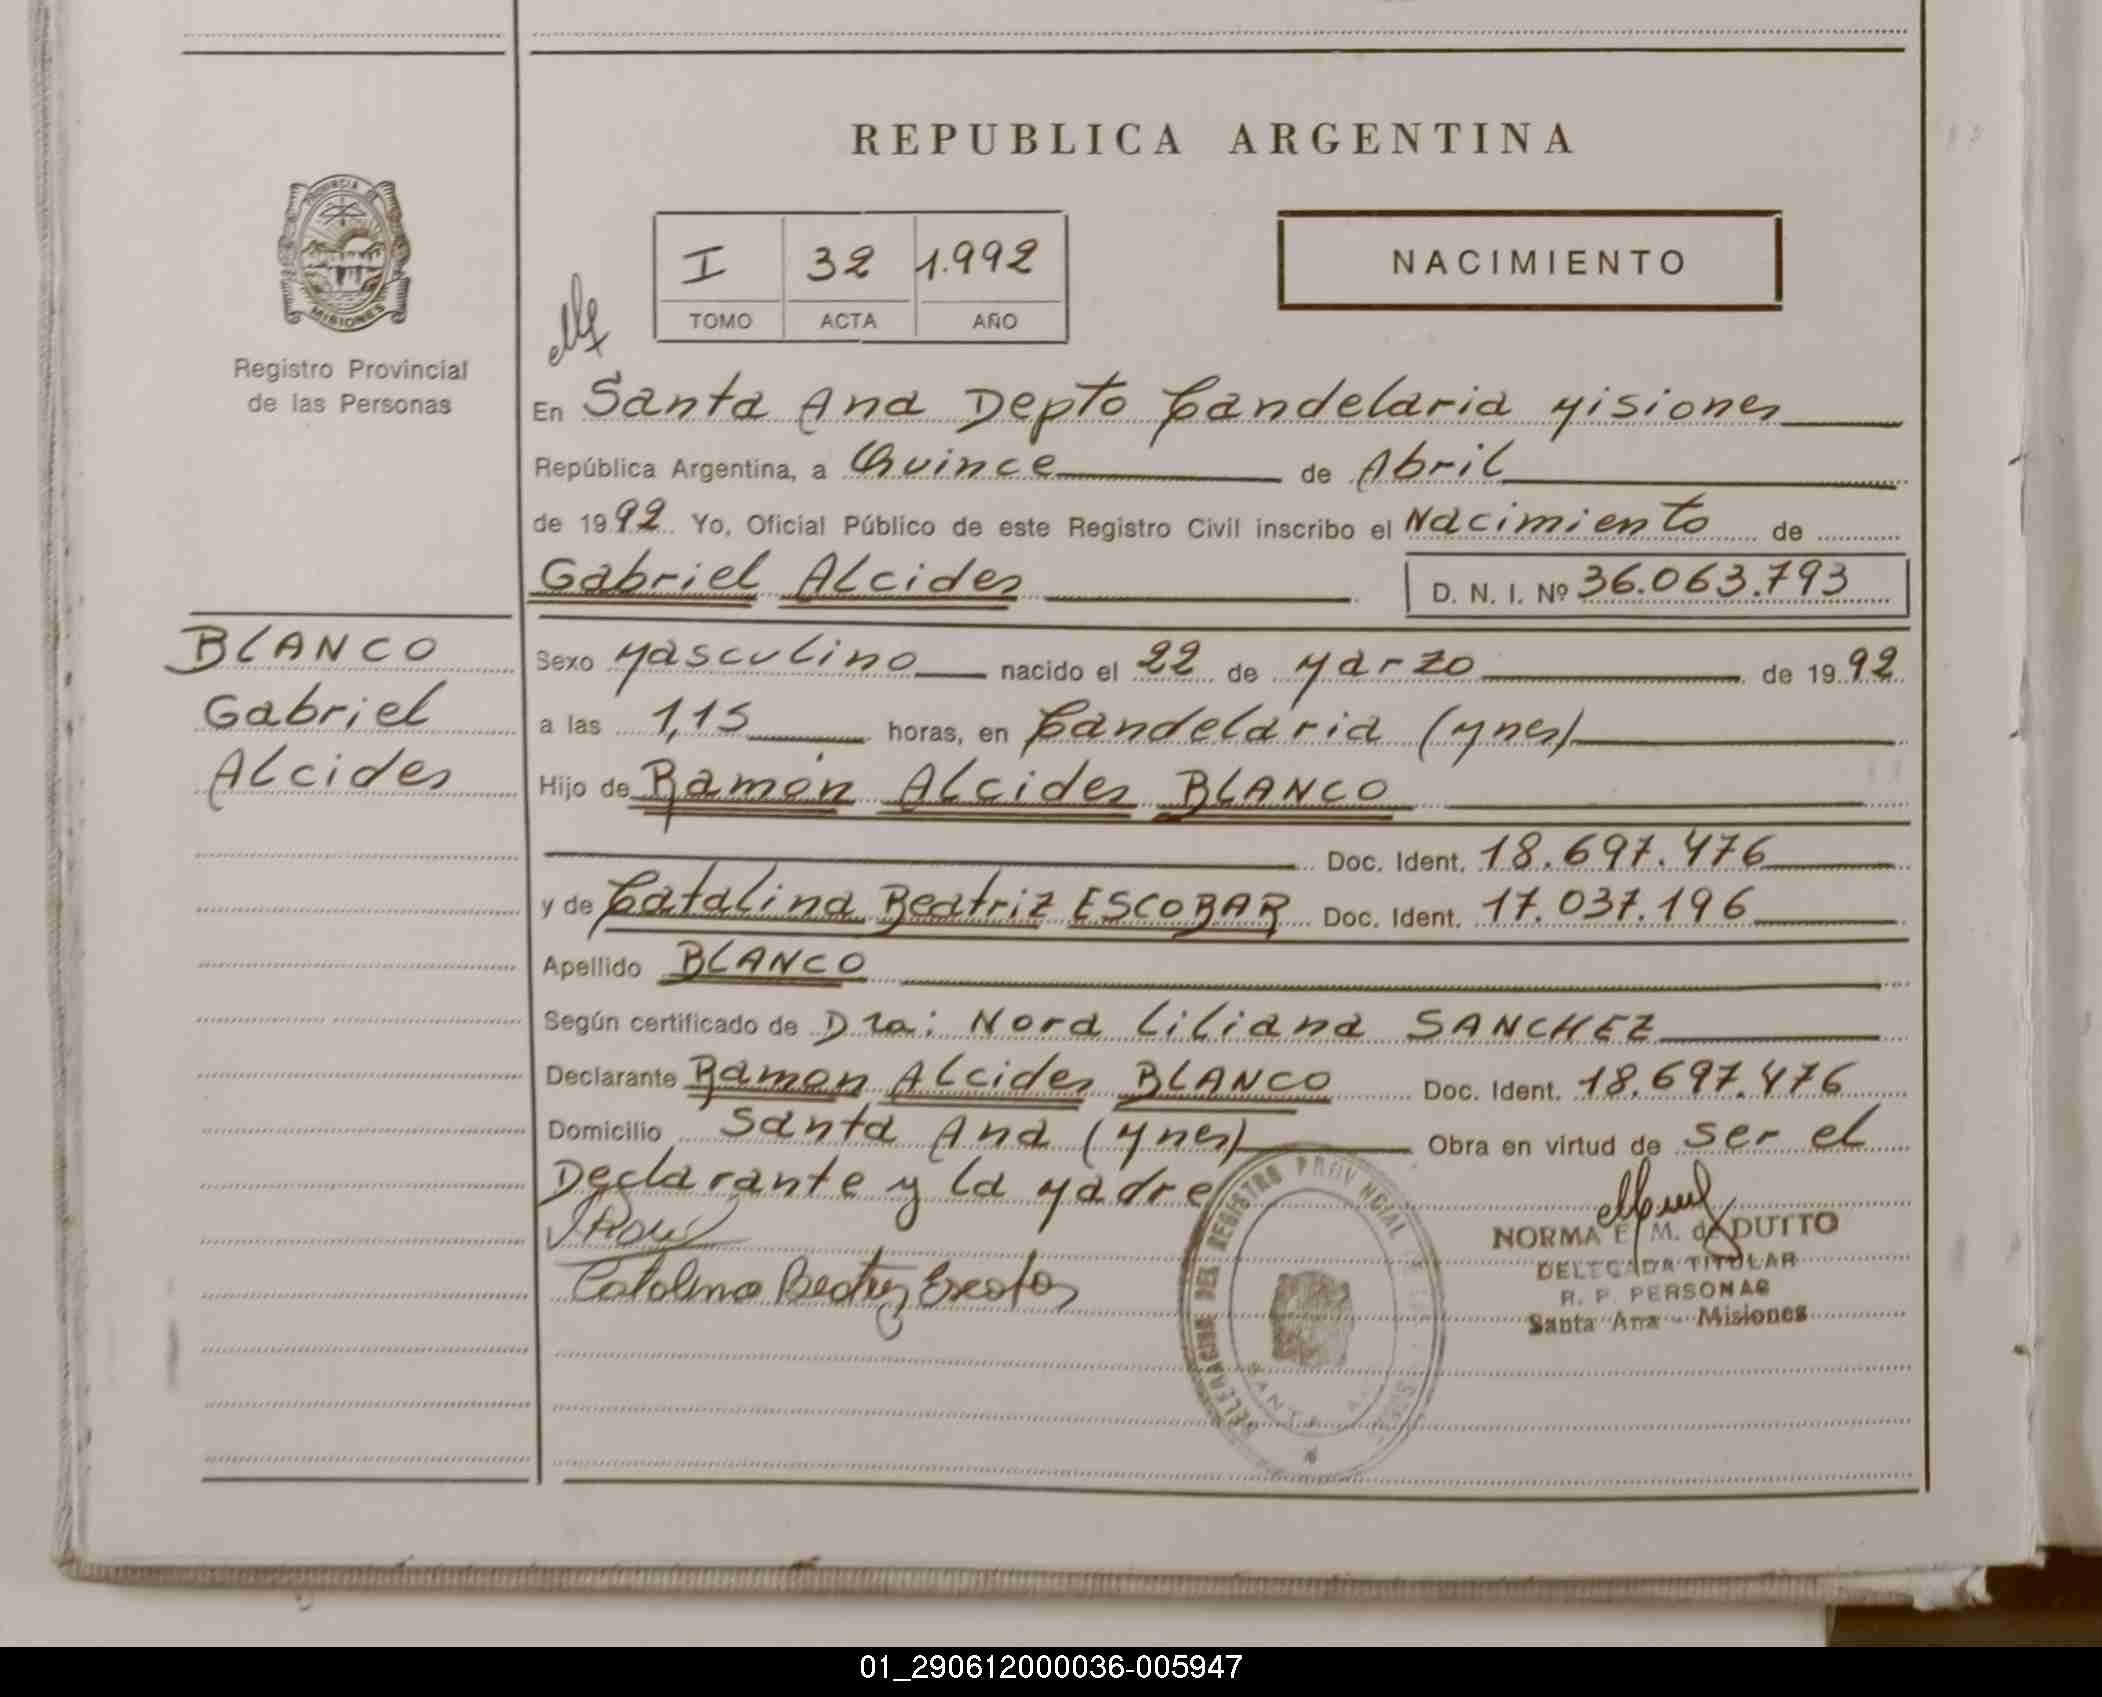 REPUBLICA ARGENTINA
PROVINCIA DE
MISIONES
Registro Provincial
de las Personas
I 32 1.992
TOMO ACTA AÑO
NACIMIENTO
En Santa Ana Depto Candelaria Misiones
República Argentina, a Quince de Abril
de 1992 Yo, Oficial Público de este Registro Civil inscribo el Nacimiento de
Gabriel Alcides D. N. I. Nº 36.063.793
BLANCO
Gabriel
Alcides
Sexo Masculino nacido el 22 de Marzo de 1992
a las 1,15 horas, en Candelaria (Mnes)
Hijo de Ramón Alcides BLANCO
Doc. Ident. 18.697.476
y de Catalina Beatriz ESCOBAR Doc. Ident. 17.037.196
Apellido BLANCO
Según certificado de Dra: Nora Liliana SANCHEZ
Declarante Ramon Alcides BLANCO Doc. Ident. 18.697.476
Domicilio Santa Ana (Mnes) Obra en virtud de ser el
Declarante y la Madre
Catalina Beatriz Escobar
NORMA E. M. de DUTTO
DELEGADA TITULAR
R. P. PERSONAS
Santa Ana - Misiones
DEL REGISTRO PROVINCIAL
SANTA
01_290612000036-005947